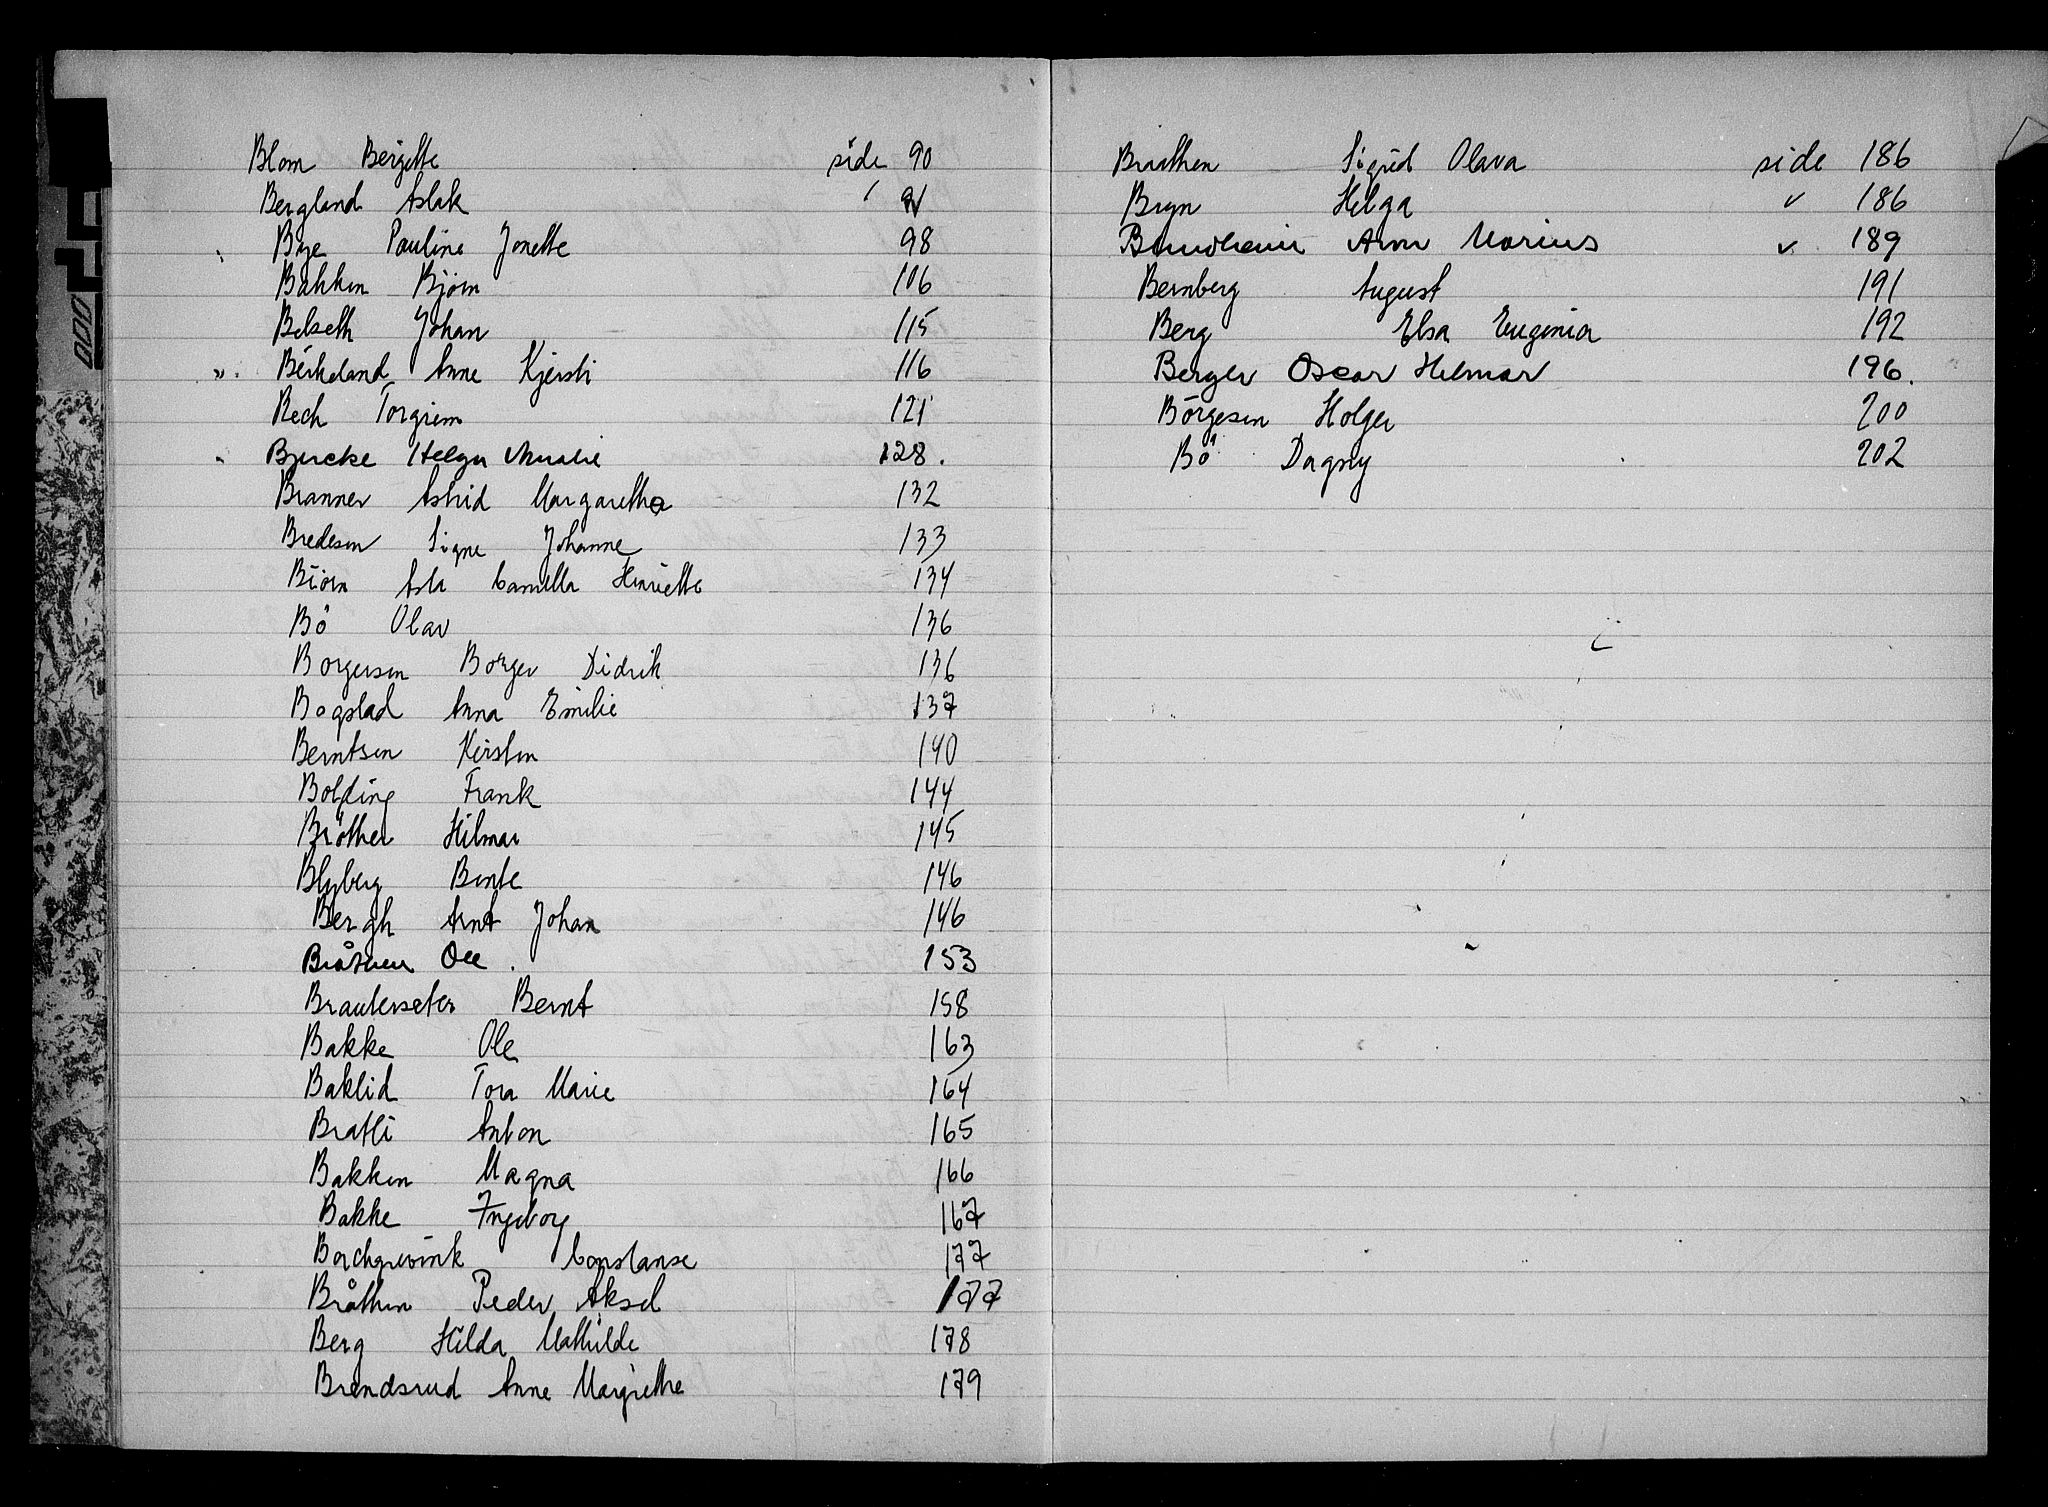 Blom Bergitte side 90
Bergland Aslak
Bye Pauline Jonette 98
Bakken Bjørn 106
Belseth Johan 115
Birkeland Anne Kjersti 116
Bech Torgrim 121
Bjercke Helga Amalie 128.
Branner Astrid Margarethe 132
Bredesen Signe Johanne 133
Bjørn Asta Camilla Henriette 134
Bö Olav 136
Borgersen Borger Didrik 136
Bogstad Anna Emilie 137
Berntsen Kirsten 140
Bolding Frank 144
Bröther Hilmar 145
Blyberg Bente 146
Bergh Arnt Johan 146
Bråtuen Ole . 153
Brauterseter Bernt 158
Bakke Ole 163
Baklid Tora Marie 164
Bratli Anton 165
Bakken Magna 166
Bakke Ingeborg 167
Borchgrevink Constanse 177
Bråthen Peder Aksel 177
Berg Hilda Mathilde 178
Brendsrud Anne Margrethe 179
Braathen Sigrid Olava side 186
Bryn Helga 186
Arne Marius 189
Bernberg August 191
Berg Elsa Eugenia 192
Berger Oscar Hilmar 196.
Börgesen Holger 200
Bö Dagny 202